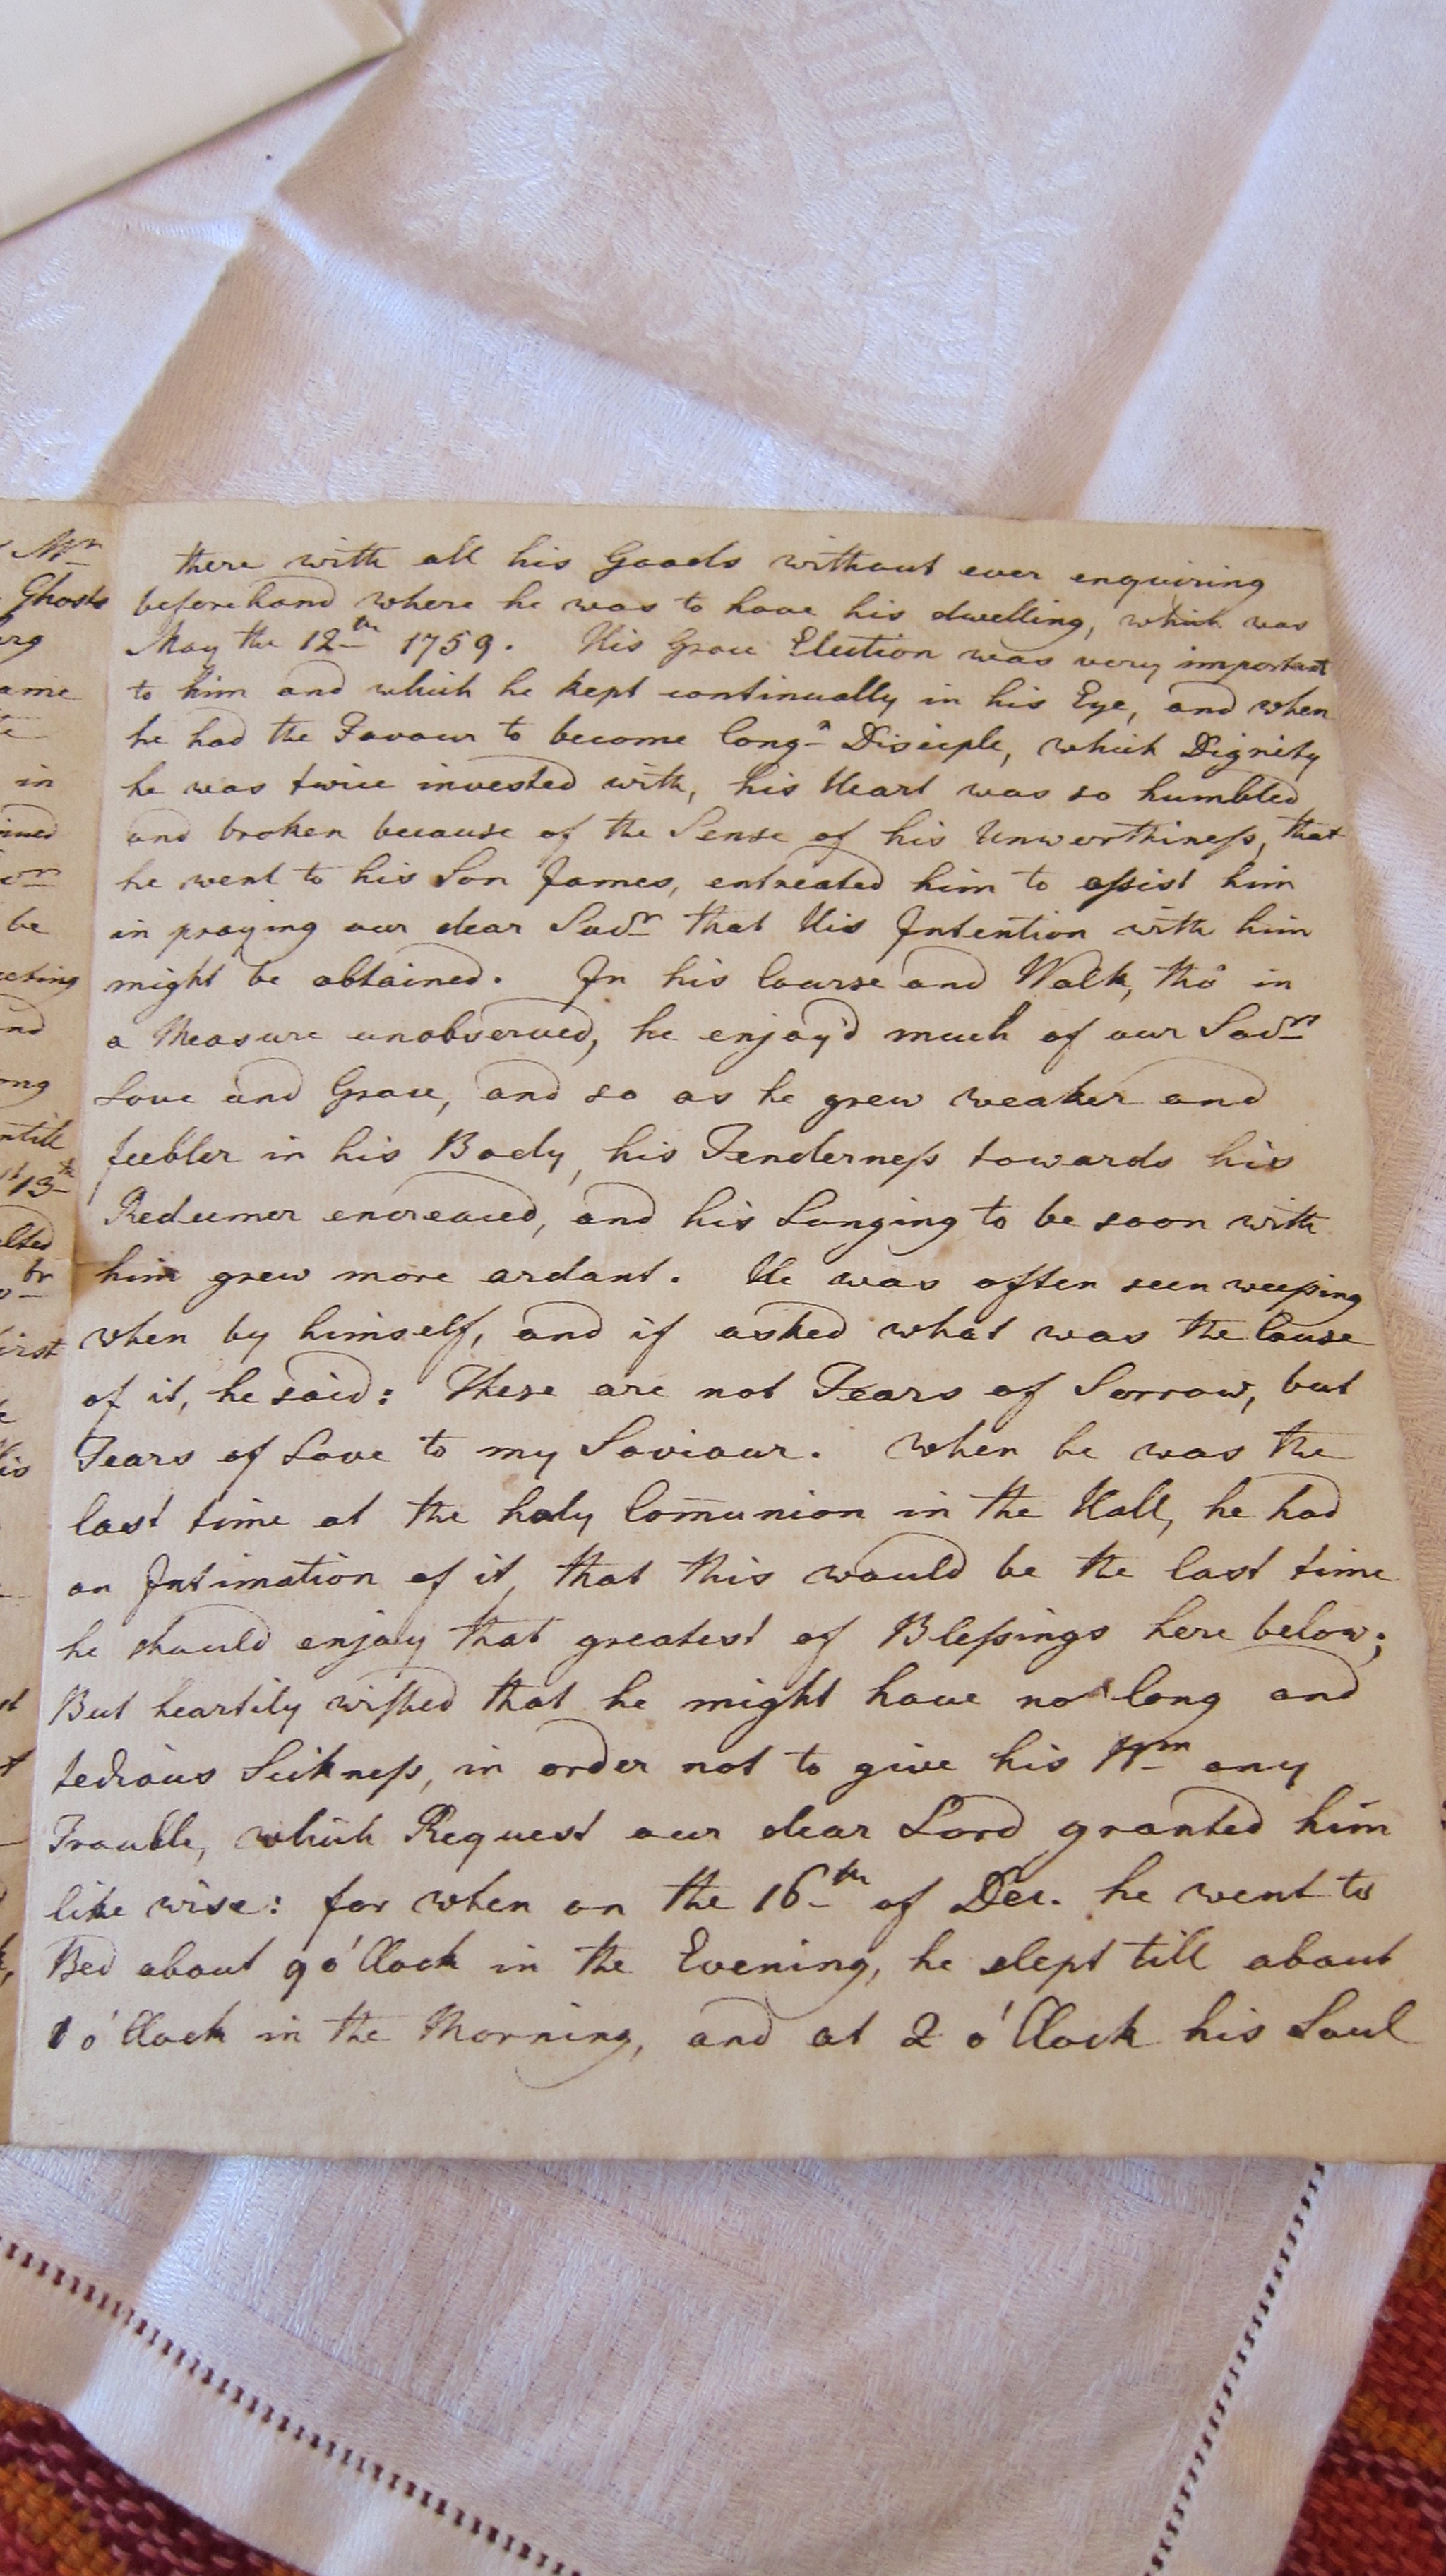 Mr
Ghosts
in
be
and
13th
br
there with all his Goods without ever enquiring
beforehand where he was to have his dwelling, which was
May the 12th 1759. His Grace Election was very important
to him and which he kept continually in his Eye, and when
he had the Favour to become Congn Disciple, which Dignity
he was twice invested with, his Heart was so humbled
and broken because of the Sense of his Unworthiness, that
he went to his Son James, entreated him to assist him
in praying our dear Savr that His Intention with him
might be obtained. In his Course and Walk, tho' in
a Measure unobserved, he enjoy'd much of our Savrs
Love and Grace, and so as he grew weaker and
feebler in his Body, his Tenderness towards his
Redeemer encreaced, and his Longing to be soon with
him grew more ardant. He was often seen weeping
when by himself, and if asked what was the Cause
of it, he said: These are not Tears of Sorrow, but
Tears of Love to my Saviour. When he was the
last time at the holy Com̄union in the Hall, he had
an Intimation of it, that this would be the last time
he should enjoy that greatest of Blessings here below;
But heartily wished that he might have no long and
tedious Sickness, in order not to give his Brn any
Trouble, which Request our dear Lord granted him
like wise: for when on the 16th of Dec. he went to
Bed about 9 o'Clock in the Evening, he slept till about
1 o'Clock in the Morning, and at 2 o'Clock his Soul